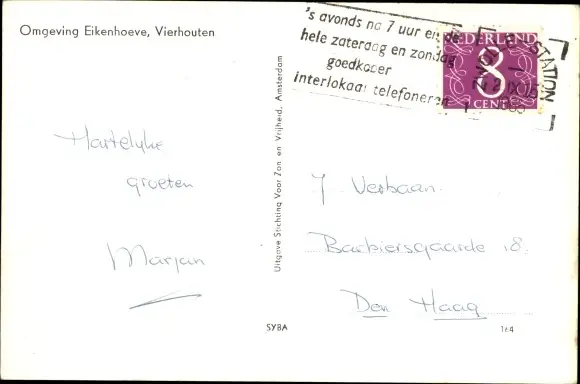 Omgeving Eikenhoeve, Vierhouten
's avonds na 7 uur en de
hele zaterdag en zondag
goedkooer
interlokaal telefoneren
NEDERLAND
8
CENT
STATION
Hartelijke
groeten
Marjan
Uitgave Stichting Voor Zon en Vrijheid, Amsterdam
J Verbaan.
Barbiersgaarde 18.
Den Haag
SYBA
164